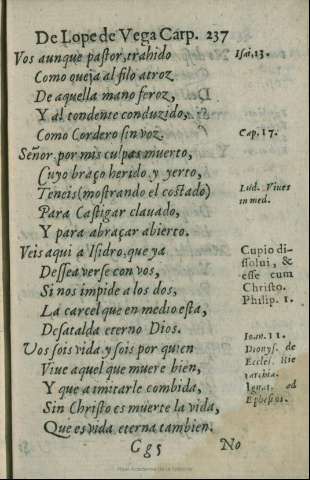 De Lope de Vega Carp. 237
Vos aunque pastor, trahido
Isai, 13.
Como queja al filo atroz
De aquella mano feroz,
Y al tondente conduzido,
Como Cordero sin voz.
Cap. 17.
Señor por mis culpas muerto,
Cuyo braço herido y yerto,
Teneis (mostrando el costado)
Lud. Viues
in med.
Para Castigar clauado,
Y para abraçar abierto.
Veis aqui a Isidro, que ya
Cupio di-
ssolui, &
Dessea verse con vos,
esse cum
Si nos impide a los dos,
Christo.
Philip. 1.
La carcel que en medio esta,
Desatalda eterno Dios.
Ioan. 11.
Vos sois vida y sois por quien
Dionys. de
Eccles. Hie
Viue aquel que muere bien,
rarchia.
Y que a imitarle combida,
Ignat. ad
Ephesios.
Sin Christo es muerte la vida,
Que es vida eterna tambien.
Gg5
No
Real Academia de la Historia